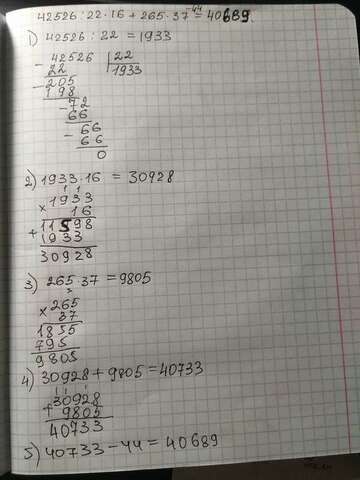 42526 : 22 · 16 + 265 · 37 - 44 = 40689.
1) 42526 : 22 = 1933
- 42526 | 22
22 1933
- 205
198
- 72
66
- 66
66
0
2) 1933 · 16 = 30928
1 1
× 1933
16
+ 11598
1933
30928
3) 265 · 37 = 9805
× 265
37
1855
795
9805
4) 30928 + 9805 = 40733
1 1 1
+ 30928
9805
40733
5) 40733 - 44 = 40689